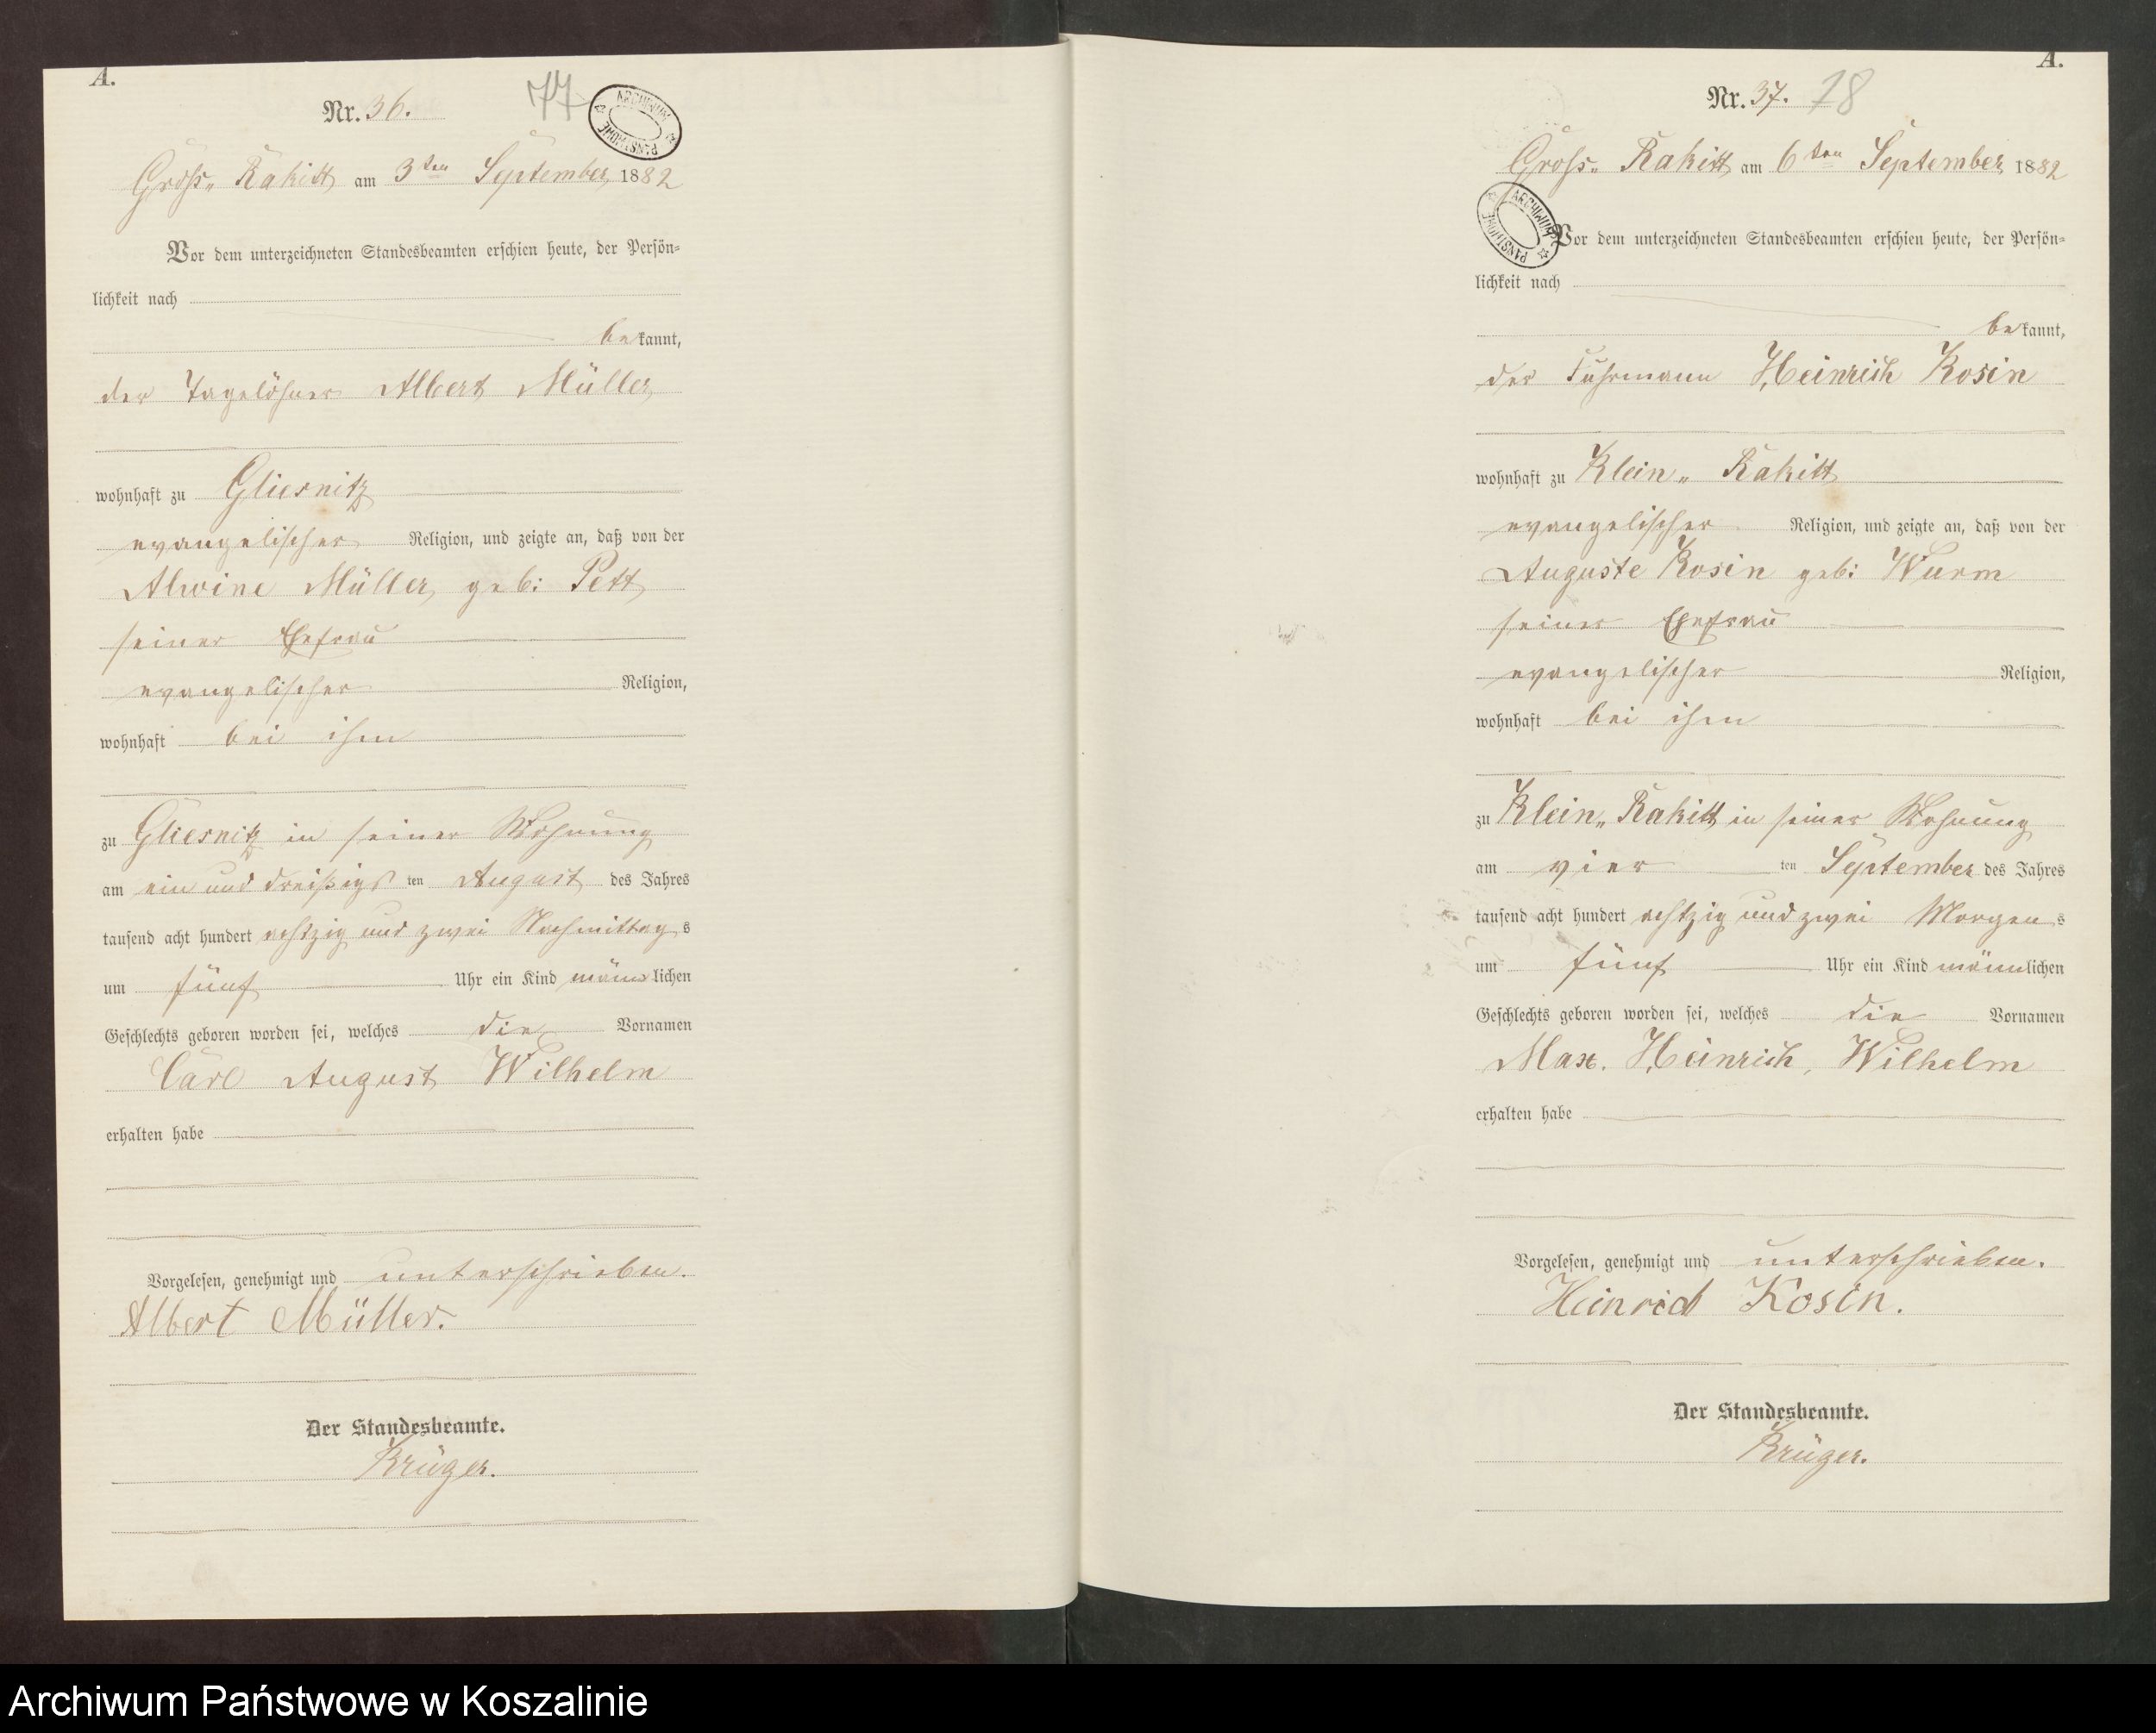 A.
Nr. 36. 77
ARCHIWUM PAŃSTWOWE
Gross„ Rakitt am 3ten September 1882
Vor dem unterzeichneten Standesbeamten erschien heute, der Persön-
lichkeit nach
bekannt,
der Tagelöhner Albert Müller
wohnhaft zu Gliesnitz
evangelischer Religion, und zeigte an, daß von der
Alwine Müller, geb: Pett,
seiner Ehefrau
evangelischer Religion,
wohnhaft bei ihm
zu Gliesnitz in seiner Wohnung
am ein und dreißigs ten August des Jahres
tausend acht hundert achtzig und zwei Nachmittags
um fünf Uhr ein Kind männlichen
Geschlechts geboren worden sei, welches die Vornamen
Carl August Wilhelm
erhalten habe
Vorgelesen, genehmigt und unterschrieben.
Albert Müller.
Der Standesbeamte.
Krüger.
A.
Nr. 37. 78
Gross„ Rakitt am 6ten September 1882
ARCHIWUM PAŃSTWOWE
Vor dem unterzeichneten Standesbeamten erschien heute, der Persön-
lichkeit nach
bekannt,
der Fuhrmann Heinrich Kosin
wohnhaft zu Klein„ Rakitt
evangelischer Religion, und zeigte an, daß von der
Auguste Kosin geb: Wurm
seiner Ehefrau
evangelischer Religion,
wohnhaft bei ihm
zu Klein„ Rakitt in seiner Wohnung
am vier ten September des Jahres
tausend acht hundert achtzig und zwei Morgens
um fünf Uhr ein Kind männlichen
Geschlechts geboren worden sei, welches die Vornamen
Max. Heinrich, Wilhelm
erhalten habe
Vorgelesen, genehmigt und unterschrieben.
Heinrich Kosin.
Der Standesbeamte.
Krüger.
Archiwum Państwowe w Koszalinie